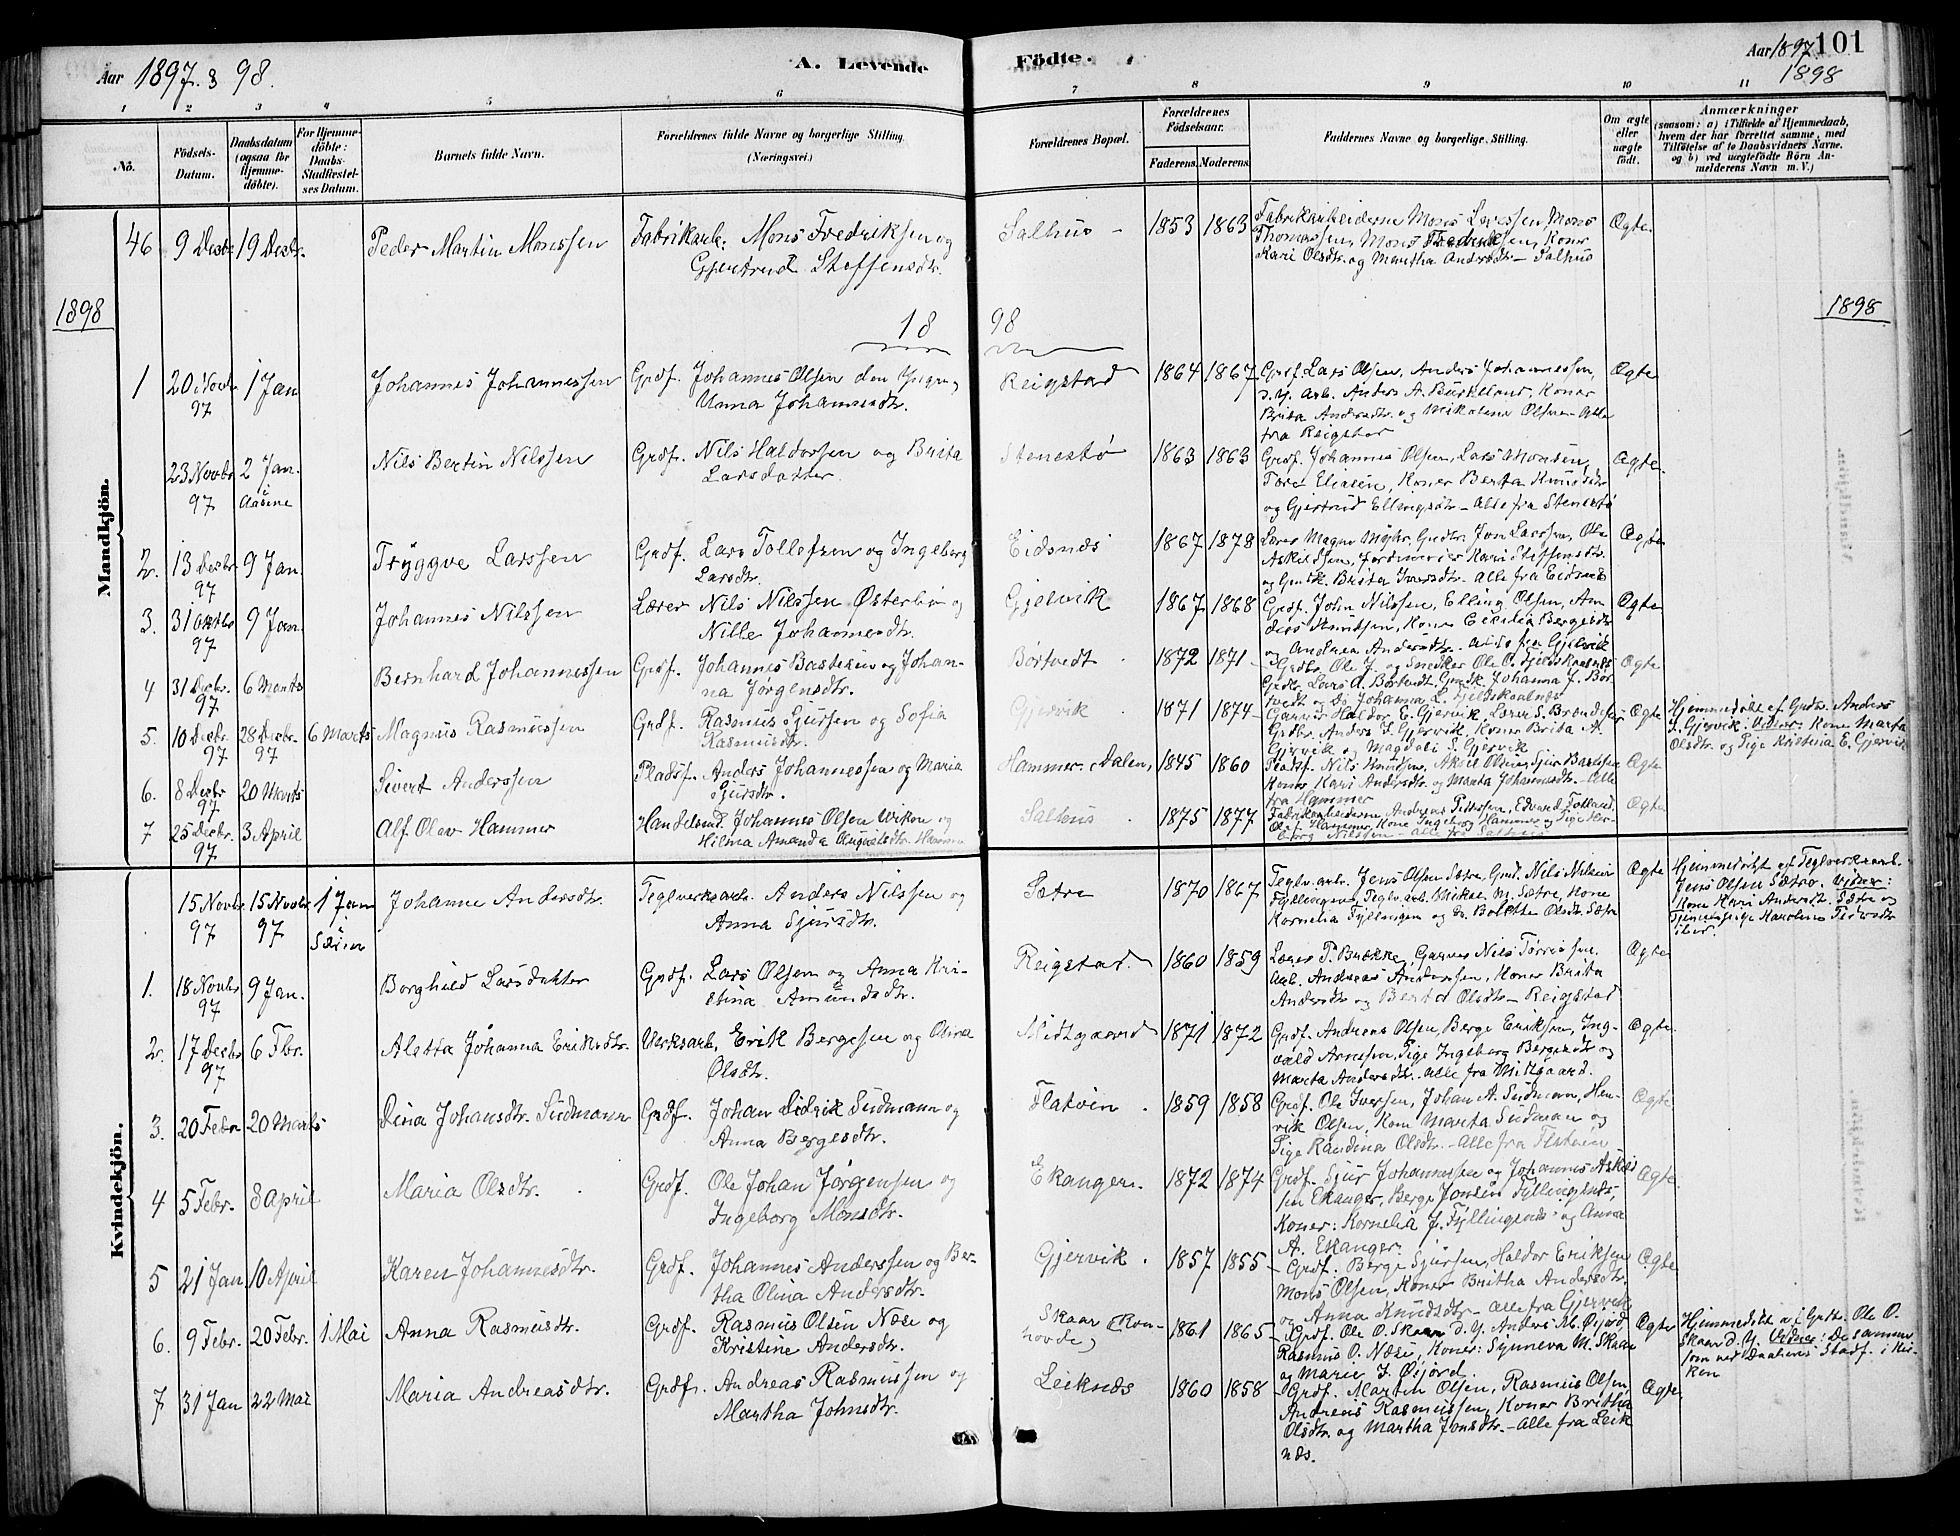 Aar 1897 & 98.
A. Levende Födte.
Aar 1897. 101
1898
1 2 3 4 5 6 7 8 9 10 11
No.
Födsels-Datum.
Daabsdatum (ogsaa for Hjemmedöbte).
For Hjemmedöbte: Daabs-Stadfæstelses Datum.
Barnets fulde Navn.
Forældrenes fulde Navne og borgerlige Stilling. (Næringsvei.)
Forældrenes Bopæl.
Forældrenes Födselsaar.
Faderens. Moderens.
Faddernes Navne og borgerlige, Stilling.
Om ægte eller uægte født.
Anmærkninger
(saasom: a) i Tilfælde af Hjemmedaab,
hvem der har forrettet samme, med
Tilföielse af to Daabsvidners Navne.
og b) ved uægtefödte Börn An-
melderens Navn m. V.)
Mandkjön.
46 9 Decbr 19 Decbr. Peder Martin Monssen
Fabrikarb. Mons Fredriksen og
Gjertrud Steffensdtr.
Salhus 1853 1863
Fabrikarbeiderne Mons Larssen, Mons
Thomassen, Mons Fredriksen, Koner
Kari Olsdtr. og Martha Andersdtr. – Salhus
Ægte.
1898
18 98
1898
1 20 Novbr 97 1 Jan Johannes Johannessen
Grdf. Johannes Olsen den Yngre,
Anna Johannesdtr.
Reigstad 1864 1867
Grdf. Lars Olsen, Anders Johannessen,
d. y. Arb. Anders A. Burkeland, Koner
Brita Andersdtr. og Mikoline Olsen – Alle
fra Reigstad
Ægte
23 Novbr 97 2 Jan. Aasene Nils Bertin Nilssen
Grdf. Nils Haldorsen og Brita
Larsdatter
Stenestø 1863 1863
Grdf. Johannes Olsen, Lars Monsen,
Tore Eliasen, Koner Berta Knudsdtr
og Gjertrud Ellingsdtr – Alle fra Stenestø
Ægte.
2. 13 Decbr 97 9 Jan Tryggve Larssen
Grdf. Lars Tollefsen og Ingeborg
Larsdtr.
Eidsnes 1867 1878
Lars Magne Myhr, Grdbr. Jon Larssen, Ole
Askildssen, Jordmoder Kari Steffensdtr.
og Grdk. Brita Iversdtr. Alle fra Eidsnes
Ægte
3. 31 Oktbr 97 9 Jan Johannes Nilssen
Lærer Nils Nilssen Østerbø og
Nille Johannesdtr.
Gjelvik 1867 1868
Grdf. John Nilssen, Elling Olsen, An
ders Knudsen, Kone Cecilia Bergesdtr
og Andrea Andersdtr. – Alle fra Gjelvik
Ægte
4 31 Decbr. 97 6 Marts Bernhard Johannessen
Grdf. Johannes Bastesen og Johan-
na Jørgensdtr.
Børtvedt 1872 1871
Grdbr. Ole J. og Snedker Ole O. Fjeldskaalnes
Grdbr. Lars A. Børtvedt, Grdk. Johanna J. Bør
tvedt og Dj. Johanna L. Fjeldskaalnes
Ægte
5. 10 Decbr. 97 28 Decbr. 97 6 Marts Magnus Rasmussen
Grdf. Rasmus Sjursen og Sofia
Rasmusdtr.
Gjervik 1871 1874
Garver Haldor E. Gjervik, Lærer S. Brandshøi
Grdbr. Anders S. Gjervik, Koner Brita A.
Gjervik og Magdali S. Gjervik
Ægte
Hjemmedøbt af Grdbr. Anders
S. Gjervik. Vidner: Kone Marta
Olsdtr. og Pige Kristina E. Gjervik
6. 8 Decbr 97 20 Marts Sivert Anderssen
Pladsf. Anders Johannessen og Maria
Sjursdtr.
Hammer, Dalen, 1845 1860
Pladsf. Nils Knudsen, Aksel Olsen, Sjur Bertelsen
Koner Kari Andersdtr. og Marta Johannesdtr. – Alle
fra Hammer
Ægte
7 25 Decbr. 97 3 April Alf Olav Hammer
Handelsmd. Johannes Olsen Viken og
Hilma Amanda Augustsdtr. Hammer
Salhus 1875 1877
Fabrikarbeiderne, Andreas Pettersen, Edvard Tolland,
Olaf Hammer, Kone Ingeborg Hammer og Pige Her-
borg Nilsden – alle fra Salhus
Ægte
Kvindekjön.
15 Novbr. 97 15 Novbr. 97 1 Jan Sæim Johanne Andersdtr.
Teglverksarb. Anders Nilssen og
Anna Sjursdtr.
Sætre 1870 1867
Teglv.arb. Jens Olsen Sætre, Grdf. Nils Nilsen
Fyllingnes, Teglv.arb. Mikal M. Sætre, Kone
Kornelia Fyllingen og Do Bolette Olsdtr. Sætre
Ægte
Hjemmedøbt af Teglverksarb.
Jens Olsen Sætre. Vidner:
Kone Kari Andersdtr. Sætre og
Tjenestepige Karoline Pedersdtr
ibid.
1. 18 Novbr 97 9 Jan. Borghild Larsdatter
Grdf. Lars Olsen og Anna Kri-
stina Amundsdtr.
Reigstad. 1860 1859
Lærer P. Brække, Garver Nils Torrissen.
Arb. Andreas Anderssen, Koner Brita
Andersdtr og Berta Olsdtr – Reigstad
Ægte
2. 17 Decbr 97 6 Fbr. Aletta Johanna Eriksdtr.
Verksarb. Erik Bergesen og Olina
Olsdtr.
Midtgaard 1871 1872
Grdf. Andreas Olsen, Berge Eriksen, Ing-
vald Arnesen, Pige Ingeborg Bergesdtr og
Marta Andersdtr. – alle fra Midtgaard.
Ægte
3. 20 Febr 20 Marts Dina Johansdtr. Sudmann
Grdf. Johan Didrik Sudmann og
Anna Bergesdtr.
Flatøen 1859 1858
Grdf. Ole Iversen, Johan A. Sudmann, Hen-
rik Olsen, Kone Marta Sudman og
Pige Randina Olsdtr. – Alle fra Flatøen
Ægte
4 5 Febr. 8 April Maria Olsdtr.
Grdf. Ole Johan Jørgensen og
Ingeborg Monsdtr.
Ekanger. 1872 1874
Grdf. Sjur Johannessen og Johannes Askels
sen Ekanger, Berge Jonsen Fyllingsnes,
Koner: Kornelia J. Fyllingsnes og Anna
A. Ekanger.
Ægte.
5 21 Jan 10 April Karen Johannesdtr.
Grdf. Johannes Anderssen og Ber-
tha Olina Andersdtr.
Gjervik 1857 1855
Grdf. Berge Sjursen, Haldor Eriksen
Mons Olsen, Koner Britha Andersdtr.
og Anna Knudsdtr – alle fra Gjervik
Ægte
6. 9 Febr. 20 Febr. 1 Mai Anna Rasmusdtr.
Grdf. Rasmus Olsen Næse og
Kristine Andersdtr.
Skaar (Kon-
hovde) 1861 1865
Grdf. Ole O. Skaar d. y. Anders M. Øijord
Rasmus O. Næse, Koner: Synneva M. Skaar
og Marie J. Øijord.
Ægte
Hjemmedøbt af Grdbr. Ole O.
Skaar d. y. Vidner: De samme
som ved Daabens Stadf. i Kir-
ken
7 31 Jan 22 Mai Maria Andreasdtr.
Grdf. Andreas Rasmussen og
Martha Johnsdtr.
Leiknes 1860 1858
Grdf. Martin Olsen, Rasmus Olsen,
Andreas Rasmussen, Koner Britha
Olsdtr. og Martha Jonsdtr. – Alle fra Leik
nes.
Ægte